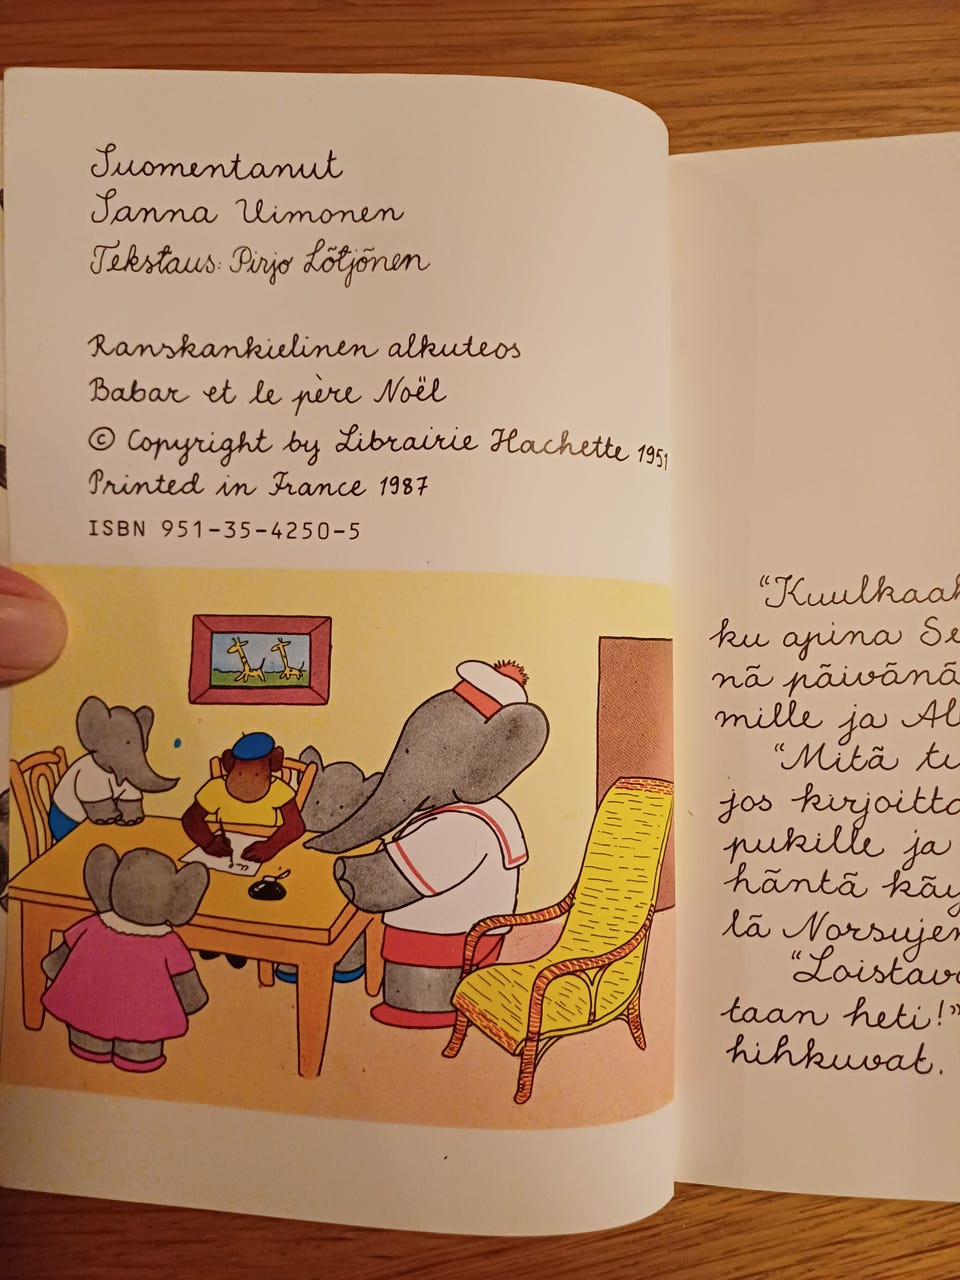 Suomentanut
Sanna Uimonen
Tekstaus: Pirjo Lötjönen
Ranskankielinen alkuteos
Babar et le père Noël
© Copyright by Librairie Hachette 1951
Printed in France 1987
ISBN 951-35-4250-5
“Kuulkaa
ku apina Se
nä päivänä
mille ja Al
“Mitä tu
jos kirjoitta
pukille ja
häntä käy
lä Norsujen
“Loistava
taan heti!”
hihkuvat.